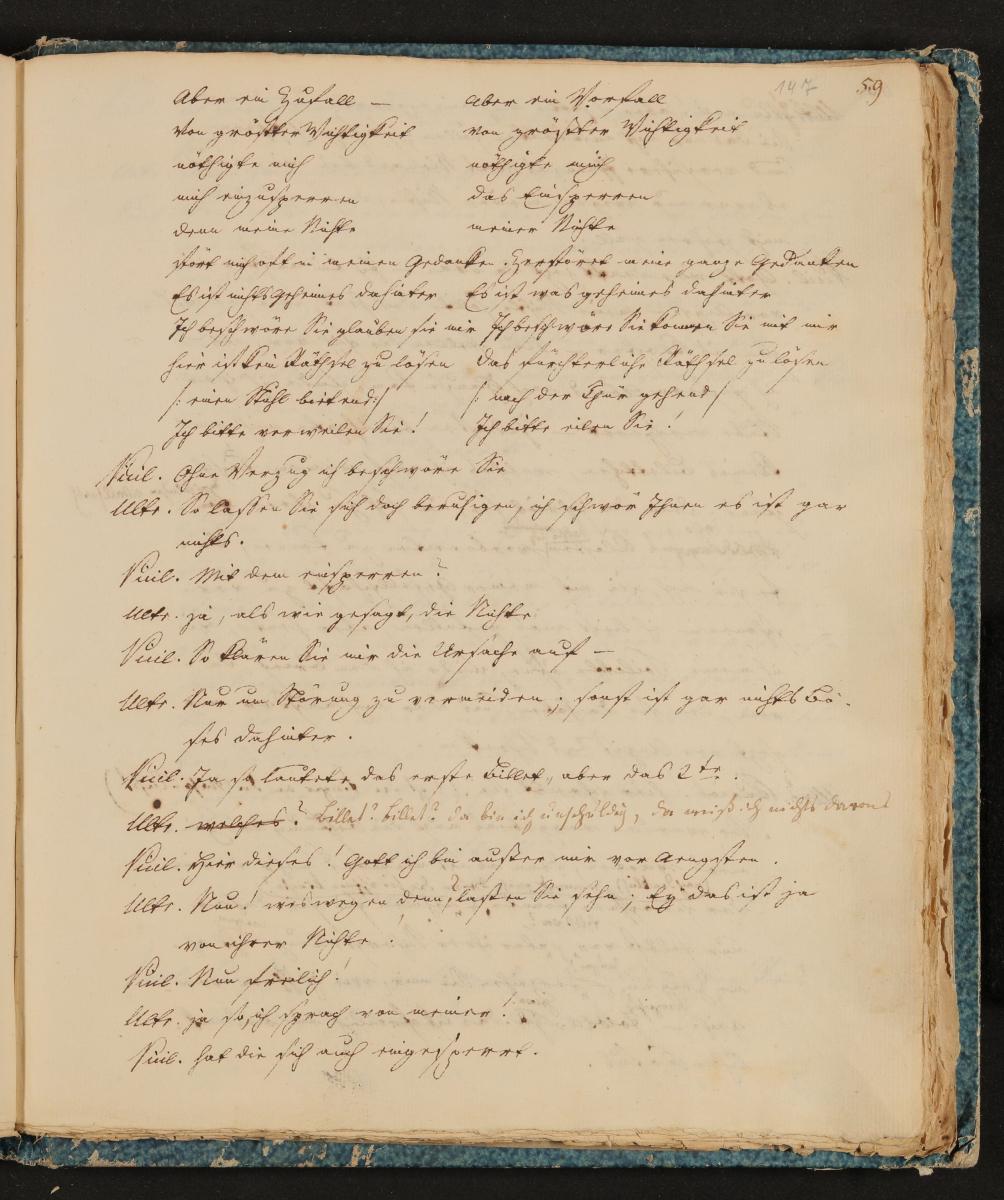 147 59
Aber ein Zufall — Aber ein Vorfall
von gröster Wichtigkeit von gröster Wichtigkeit
nöthigte mich nöthigte mich
mich einzusperren das Einsperren
denn meine Nichte meiner Nichte
stört mich oft in meinen Gedanken. Zerstöret meine ganze Gedanken
Es ist nichts geheimes dahinter Es ist was geheimes dahinter
Ich beschwöre Sie glauben sie mir Ich beschwöre Sie kommen Sie mit mir
hier ist kein Räthsel zu lösen das fürchterliche Räthsel zu lösen
/: einen Stuhl bietend :/ /: nach der Thür gehend /
Ich bitte verweilen Sie! Ich bitte eilen Sie!
Ohne Verzug ich beschwöre Sie
So lassen Sie sich doch beruhigen, ich schwör Ihnen es ist gar
nichts.
Mit dem einsperren?
ja, als wie gesagt, die Nichte
So klären Sie mir die Ursache auf —
Nur um Störung zu vermeiden, sonst ist gar nichts Bö-
ses dahinter.
Ja so lautete das erste Billet, aber das 2te.
welches? Billet? Billet? da bin ich unschuldig, da weiß ich nichts davon
Hier dieses! Gott ich bin ausser mir vor Aengsten.
Nun! weswegen denn? lassen Sie sehn; Ey das ist ja
von ihrer Nichte.
Nun freilich!
ja so, ich sprach von meiner!
hat die sich auch eingesperrt.